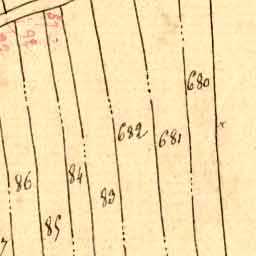 680
682
681
84
86
83
85
7